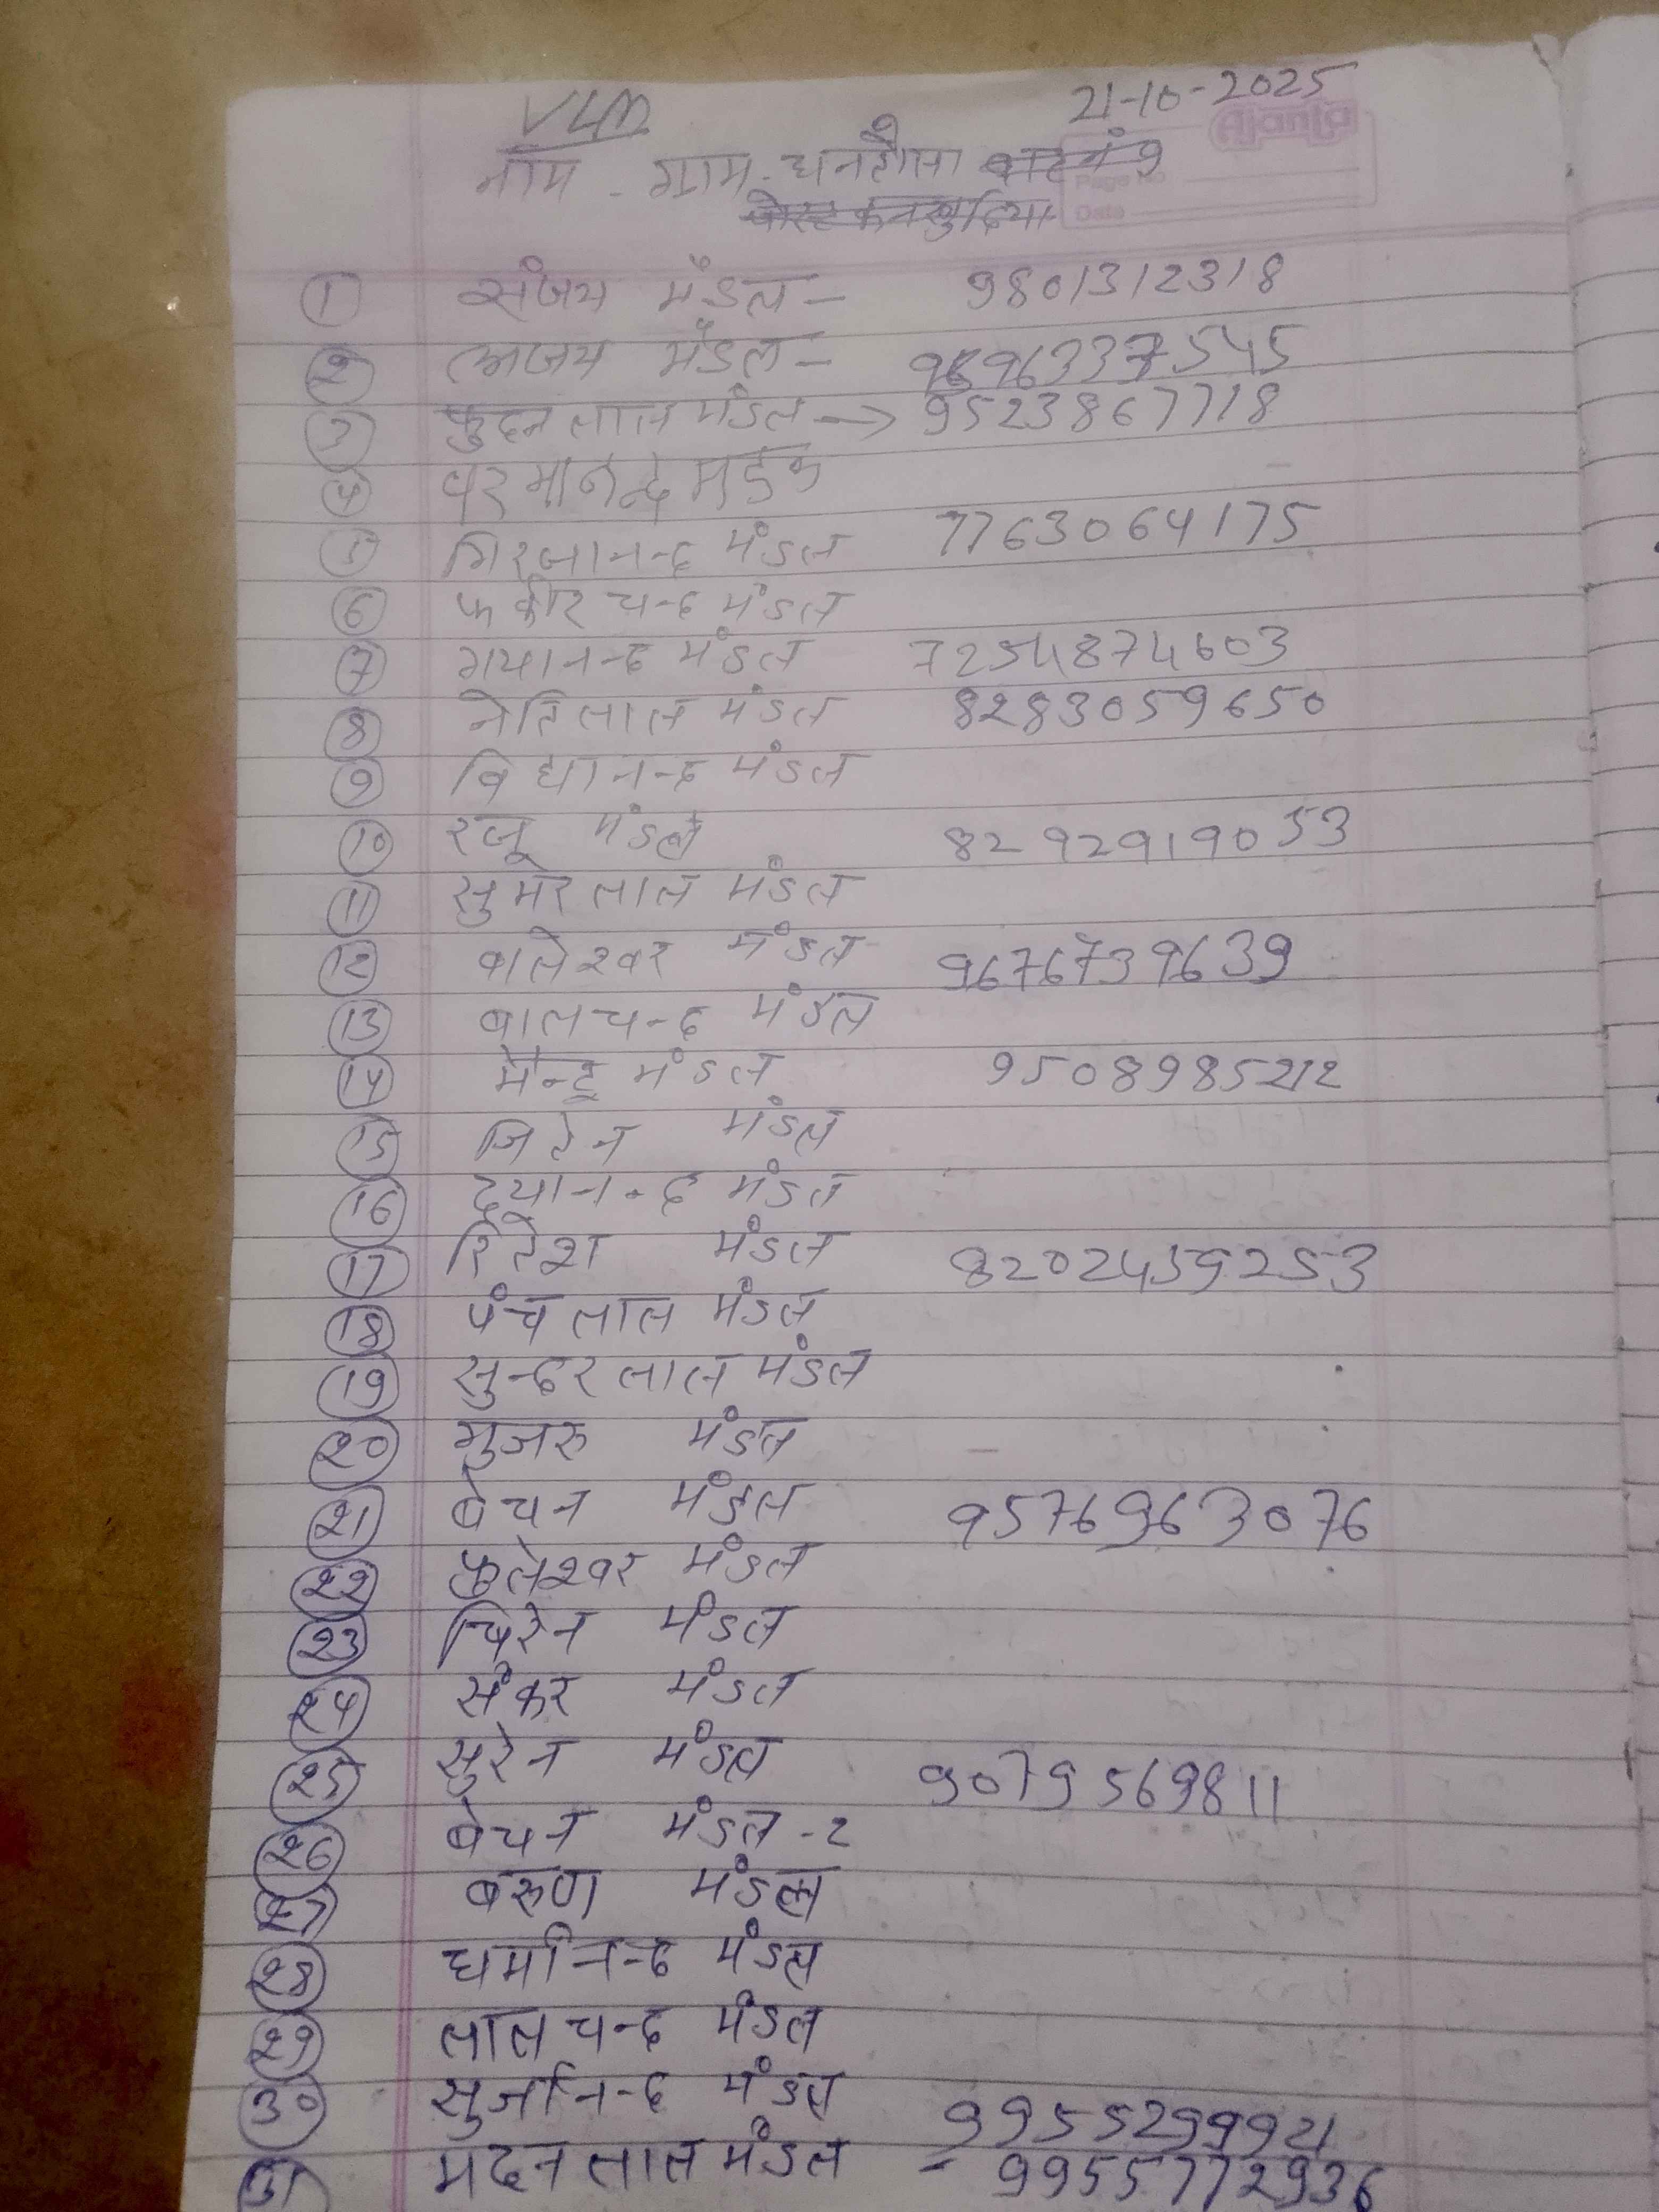 VLM
21-10-2025
Ajanta
Page No
Date
नाम - ग्राम - धनटोला
① संजय मंडल - 9801312318
② अजय मंडल -
③ फुदन लाल मंडल → 9523867718
④ परमानन्द मंडल
⑤ गिरजानन्द मंडल 7763064175
⑥ फकीर चन्द मंडल
⑦ गयानन्द मंडल 7254874603
⑧ नेतिलाल मंडल 8283059650
⑨ विद्यानन्द मंडल
⑩ रजू मंडल 8292919053
⑪ सुमेर लाल मंडल
⑫ बालेश्वर मंडल 9676739639
⑬ बालचन्द मंडल
⑭ मन्टू मंडल 9508985212
⑮ जितेन मंडल
⑯ दयानन्द मंडल
⑰ रितेश मंडल 8202459253
⑱ पंच लाल मंडल
⑲ सुन्दर लाल मंडल
⑳ गुजरु मंडल
㉑ बेचन मंडल 9576963076
㉒ फुलेश्वर मंडल
㉓ बिरेन मंडल
㉔ संकर मंडल
㉕ सुरेन मंडल 9079569811
㉖ बेचन मंडल - 2
㉗ बरुण मंडल
㉘ धर्मानन्द मंडल
㉙ लाल चन्द मंडल
㉚ सुर्जानन्द मंडल 9955299921
㉛ मदन लाल मंडल - 9955772936